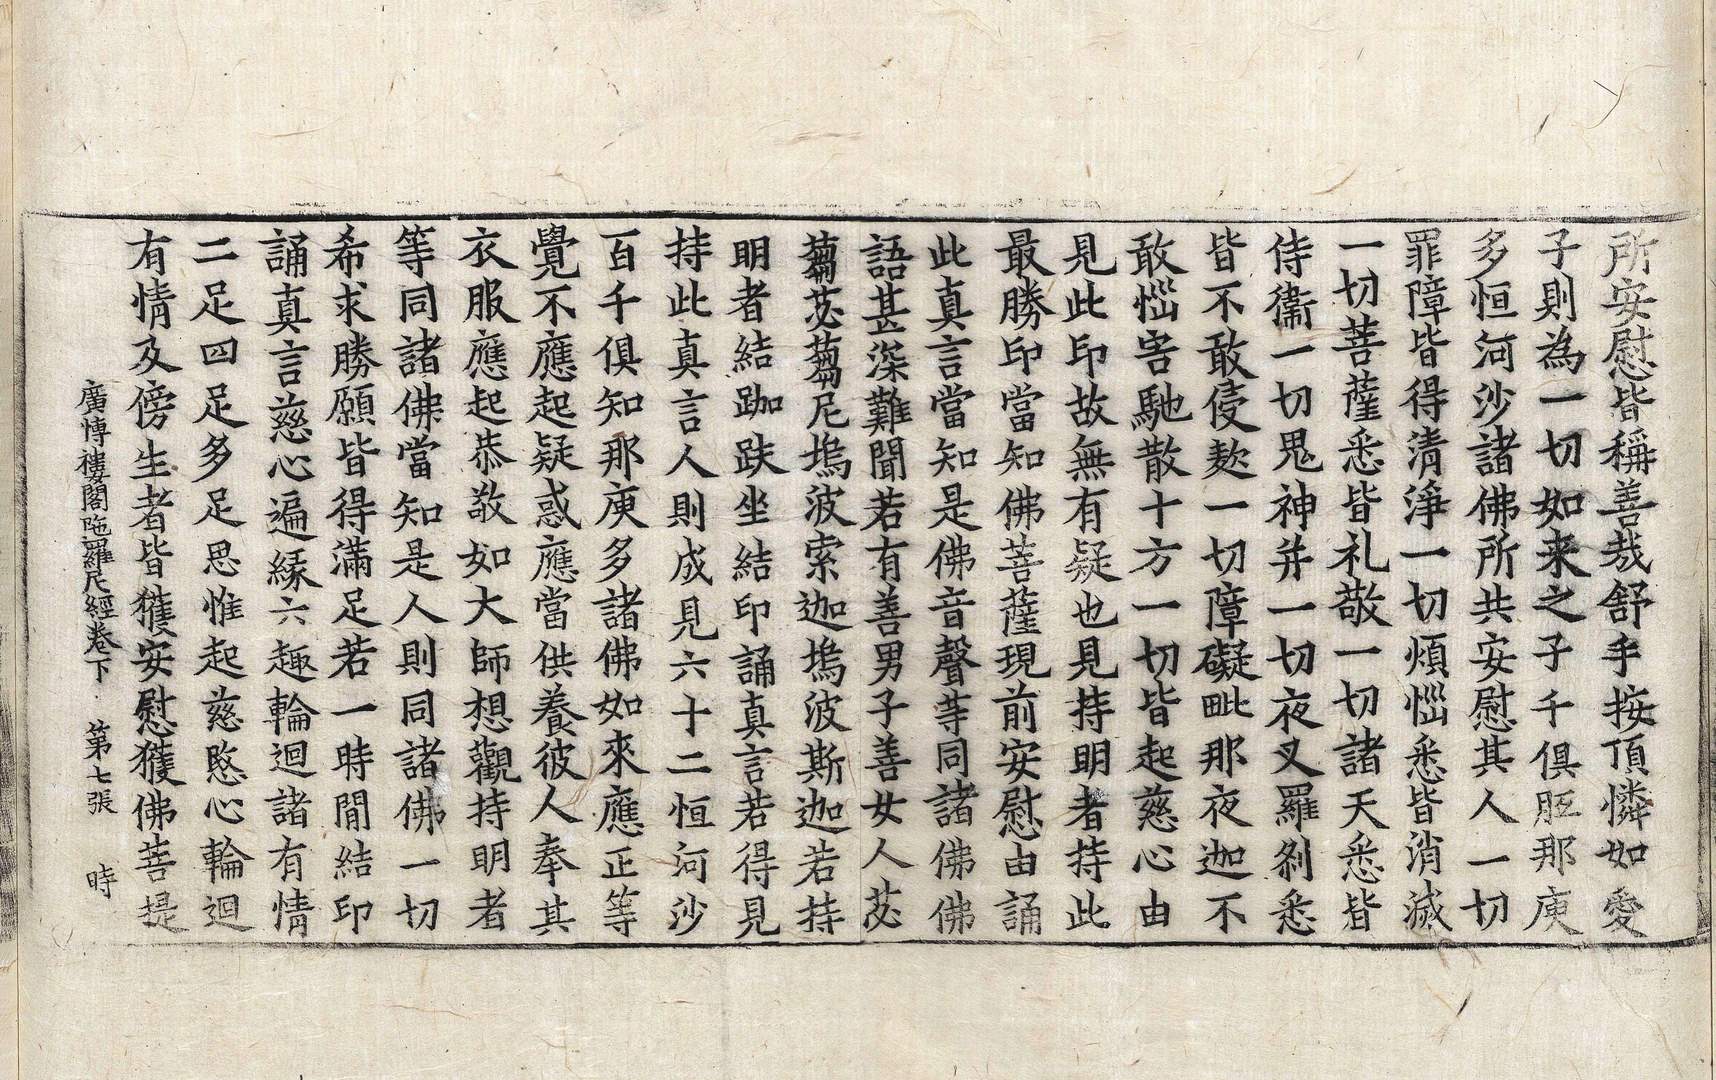 所安慰皆稱善哉舒手按頂憐如愛
子則為一切如来之子千俱胝那庾
多恒河沙諸佛所共安慰其人一切
罪障皆得清淨一切煩惱悉皆消滅
一切菩薩悉皆礼敬一切諸天悉皆
侍衞一切鬼神并一切夜叉羅剎悉
皆不敢侵欺一切障礙毗那夜迦不
敢惱害馳散十方一切皆起慈心由
見此印故無有疑也見持明者持此
最勝印當知佛菩薩現前安慰由誦
此真言當知是佛音聲等同諸佛佛
語甚深難聞若有善男子善女人苾
蒭苾蒭尼塢波索迦塢波斯迦若持
明者結跏趺坐結印誦真言若得見
持此真言人則成見六十二恒河沙
百千俱知那庾多諸佛如來應正等
覺不應起疑惑應當供養彼人奉其
衣服應起恭敬如大師想觀持明者
等同諸佛當知是人則同諸佛一切
希求勝願皆得滿足若一時閒結印
誦真言慈心遍緣六趣輪迴諸有情
二足四足多足思惟起慈愍心輪迴
有情及傍生者皆獲安慰獲佛菩提
廣博樓閣陁羅尼經卷下 第七張 時